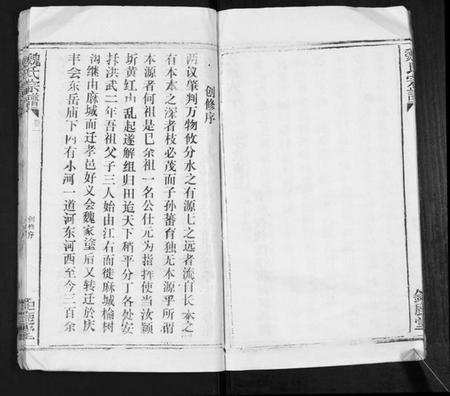 創修序
兩议肇判万物攸分水之有源匕之远者流自长木之
有本本之深者枝必茂而子孙蕃育独无本源乎所谓
本源者何祖是巳余祖一名公仕元为指挥使当汝颖
圻黄红巾乱起遂解组归田迨天下稍平分丁各处安
挿洪武二年吾祖父子三人始由江右而徙麻城榆树
沟继由麻城而迁孝邑好义会魏家塗后又转迁於庆
丰会东岳庙下网有小河一道河东河西至今三百余
魏氏宗譜
創修序
鉅鹿堂
魏氏宗譜
鉅鹿堂